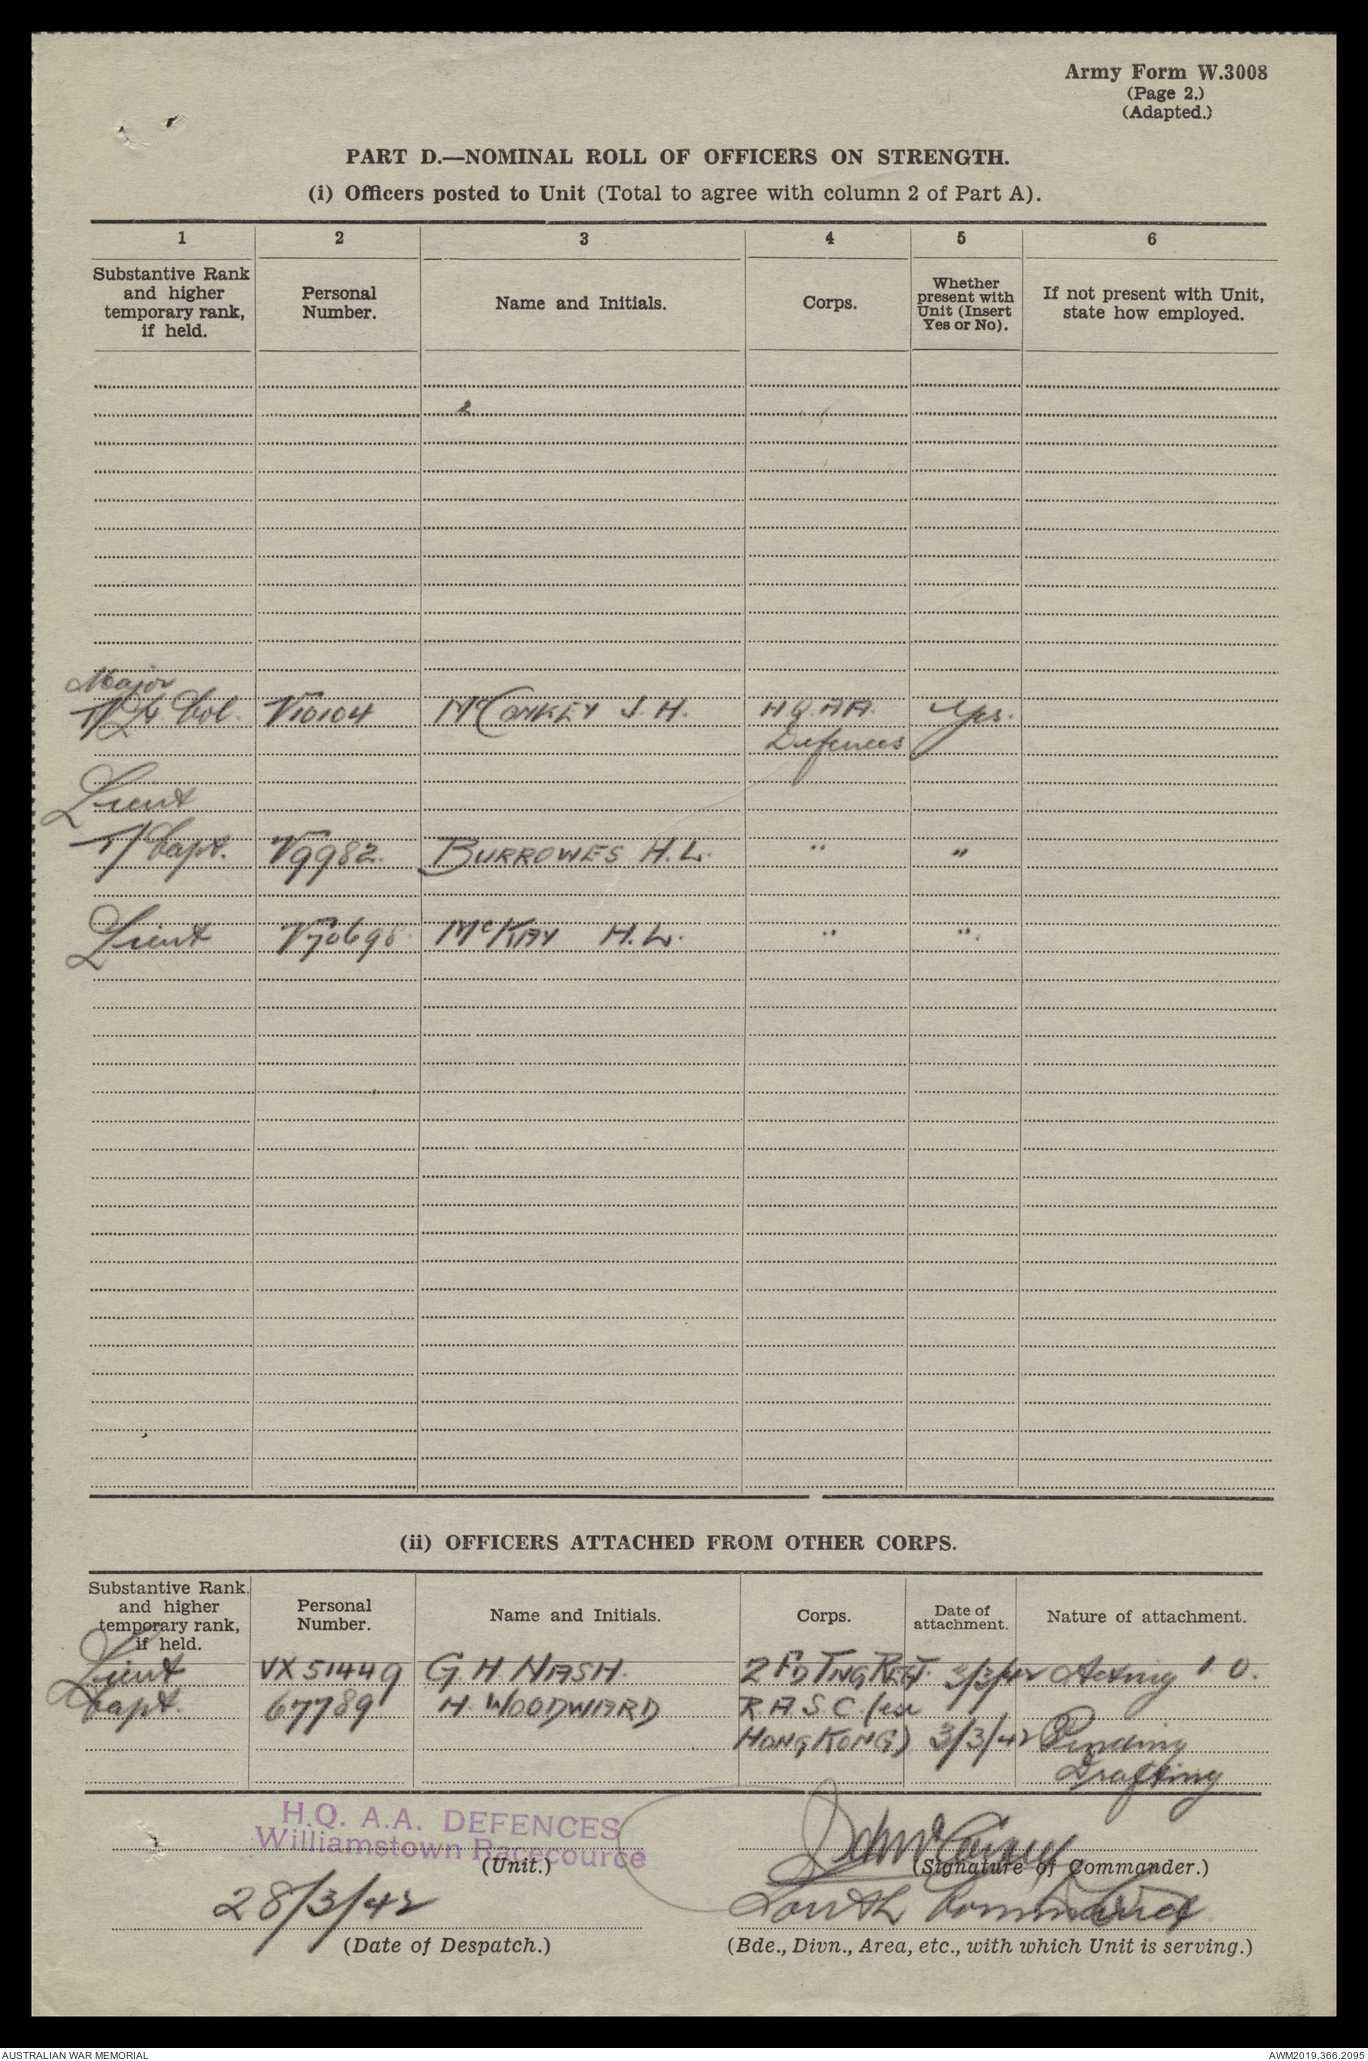 Army Form W.3008
(Page 2.)
(Adapted.)
PART D.—NOMINAL ROLL OF OFFICERS ON STRENGTH.
(i) Officers posted to Unit (Total to agree with column 2 of Part A).
1 2 3 4 5 6
Substantive Rank and higher temporary rank, if held. Personal Number. Name and Initials. Corps. Whether present with Unit (Insert Yes or No). If not present with Unit, state how employed.
Major
T/Lt Col. V10104 McCONKEY J.H. H.Q. A.A. Yes.
Defences
Lieut
T/Capt. V9982 BURROWES H.L. " "
Lieut V70698 McKAY H.L. " "
(ii) OFFICERS ATTACHED FROM OTHER CORPS.
Substantive Rank and higher temporary rank, if held. Personal Number. Name and Initials. Corps. Date of attachment. Nature of attachment.
Lieut VX51449 G.H. NASH. 2 FD TNG REGT. 3/3/42 Acting I O.
Capt. 67789 H. WOODWARD R.A.S.C. (ex
HONG KONG) 3/3/42 Pending
Drafting
H.Q. A.A. DEFENCES
Williamstown Racecourse
(Unit.) (Signature of Commander.)
28/3/42 South Command
(Date of Despatch.) (Bde., Divn., Area, etc., with which Unit is serving.)
AUSTRALIAN WAR MEMORIAL AWM2019.366.2095